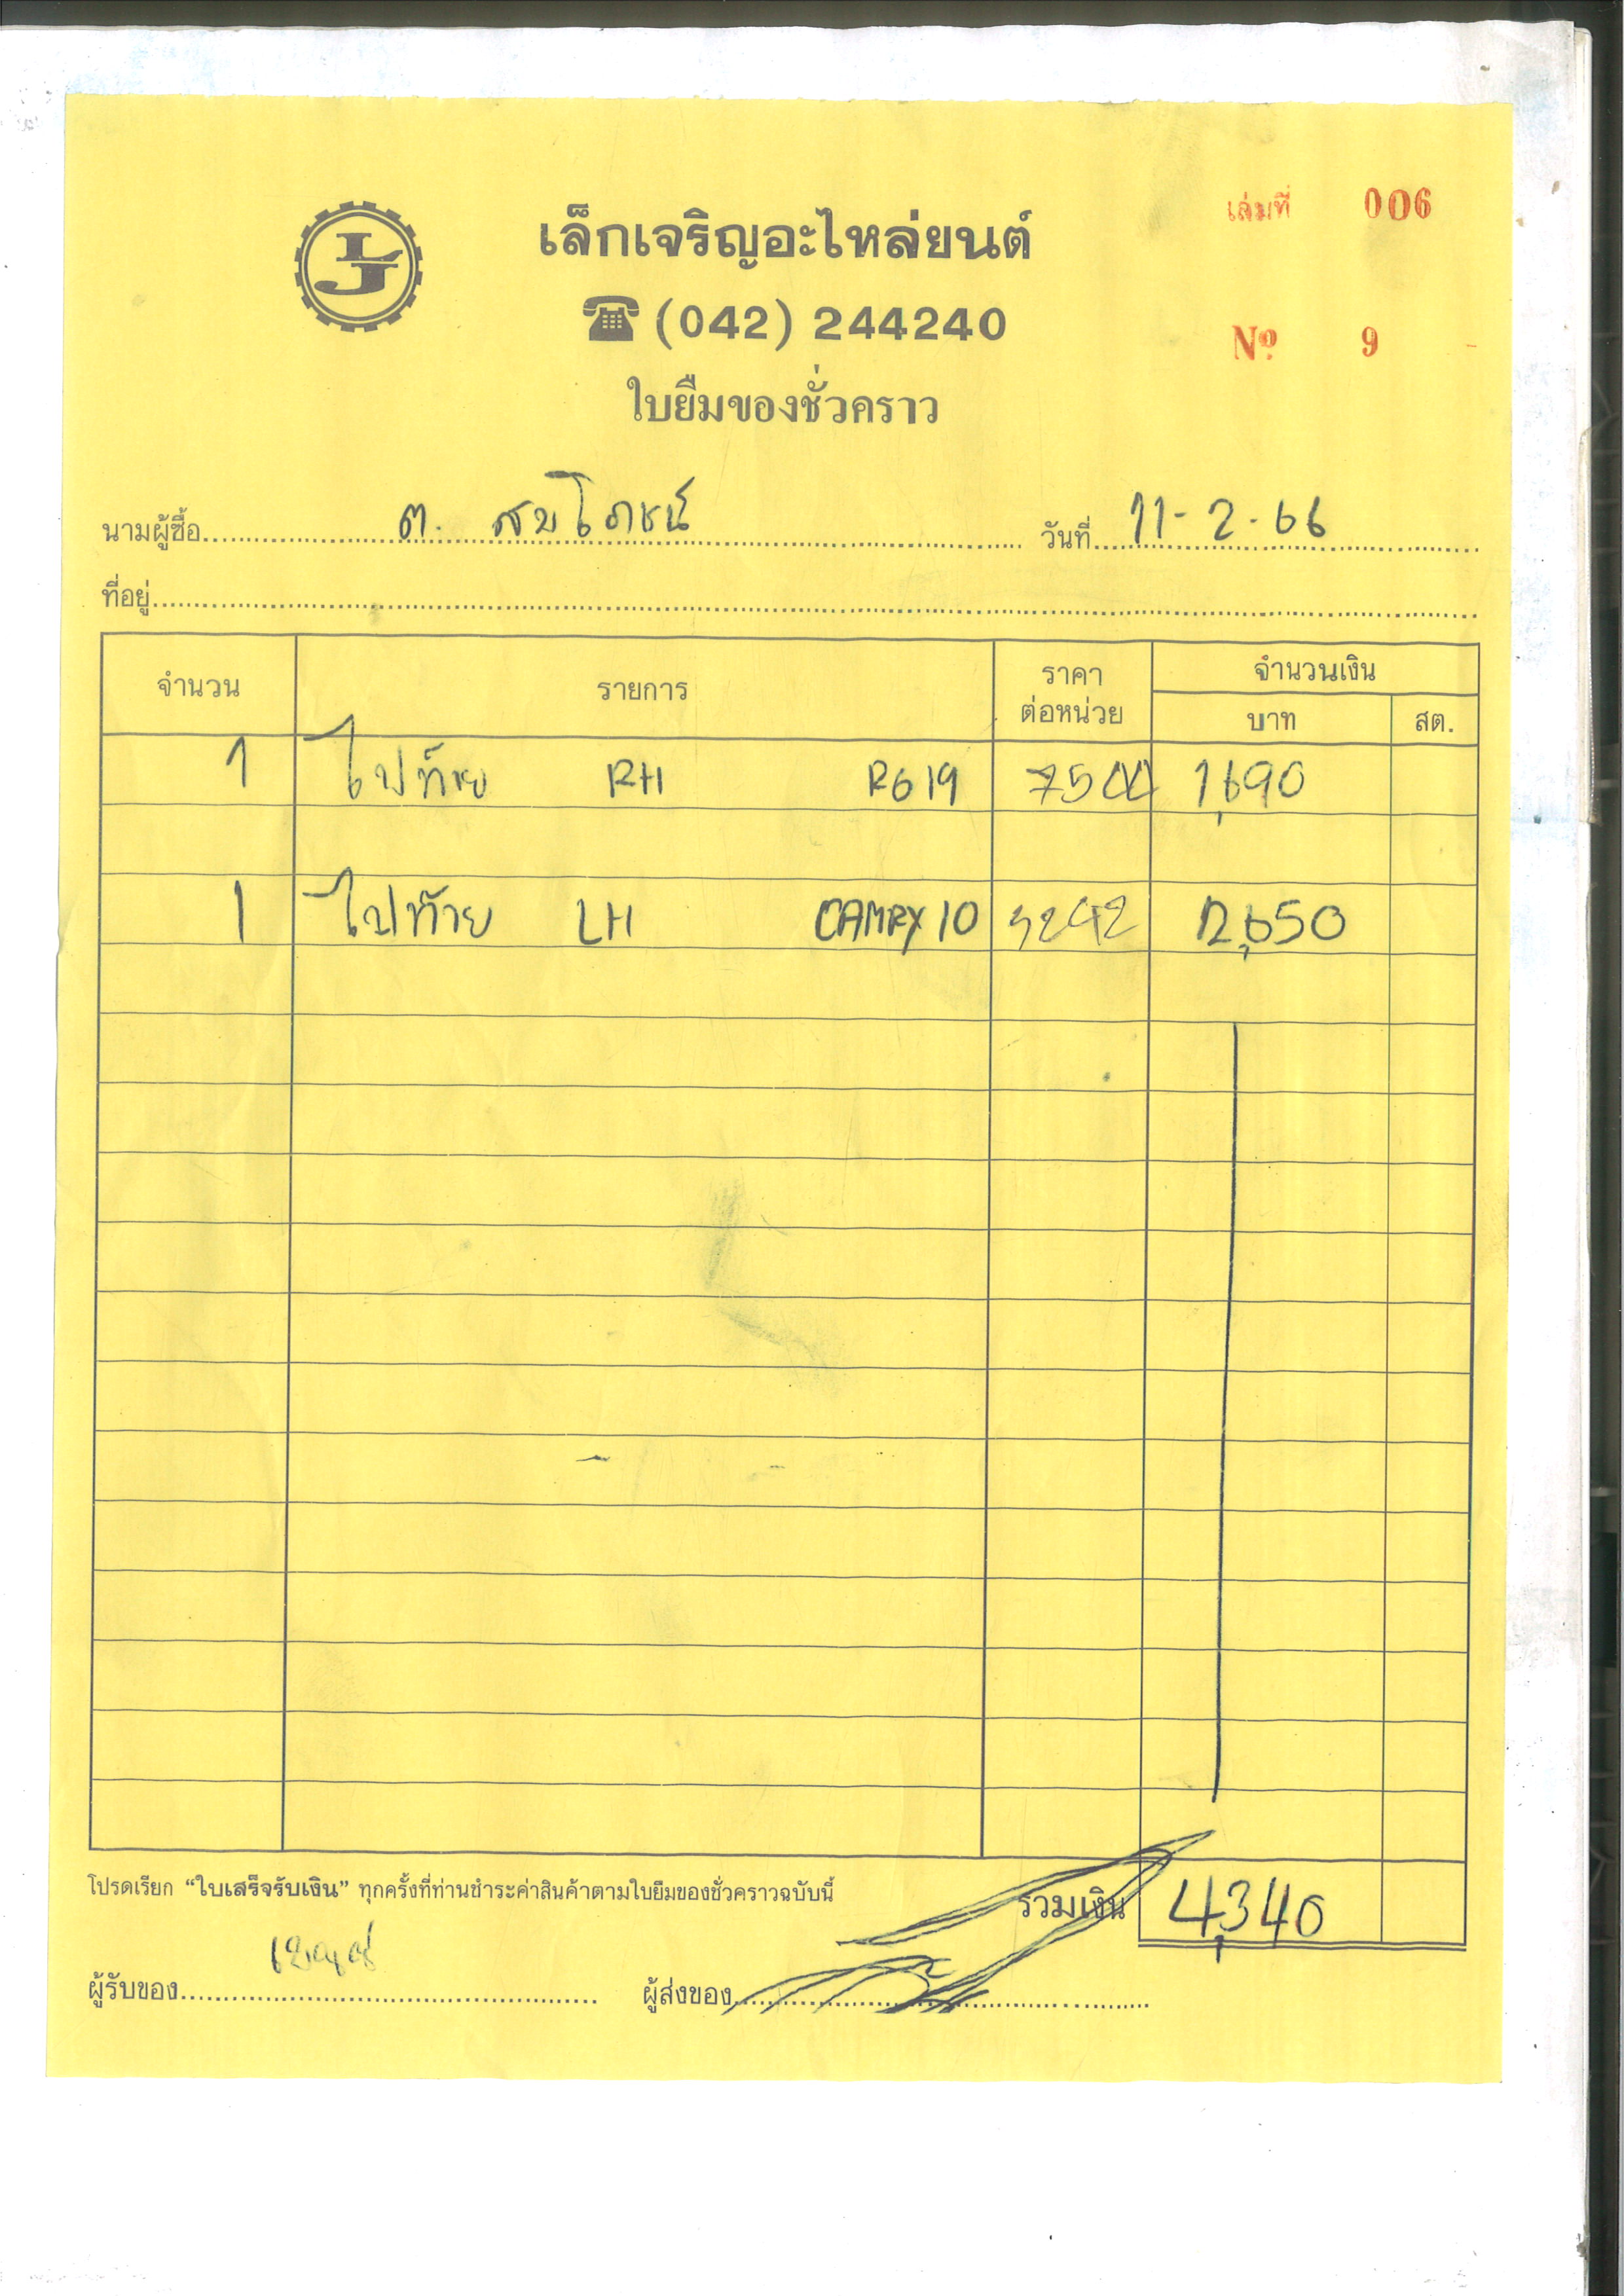 LJ
เล็กเจริญอะไหล่ยนต์
เล่มที่ 006
(042) 244240
Nº 9
ใบยืมของชั่วคราว
นามผู้ซื้อ ต. สมโภชน์ วันที่ 11-2-66
ที่อยู่
จำนวน รายการ ราคาต่อหน่วย จำนวนเงิน บาท สต.
1 ไฟท้าย RH R619 1,690
1 ไฟท้าย LH CAMRY 10 2,650
โปรดเรียก “ใบเสร็จรับเงิน” ทุกครั้งที่ท่านชำระค่าสินค้าตามใบยืมของชั่วคราวฉบับนี้
รวมเงิน 4,340
ผู้รับของ ผู้ส่งของ